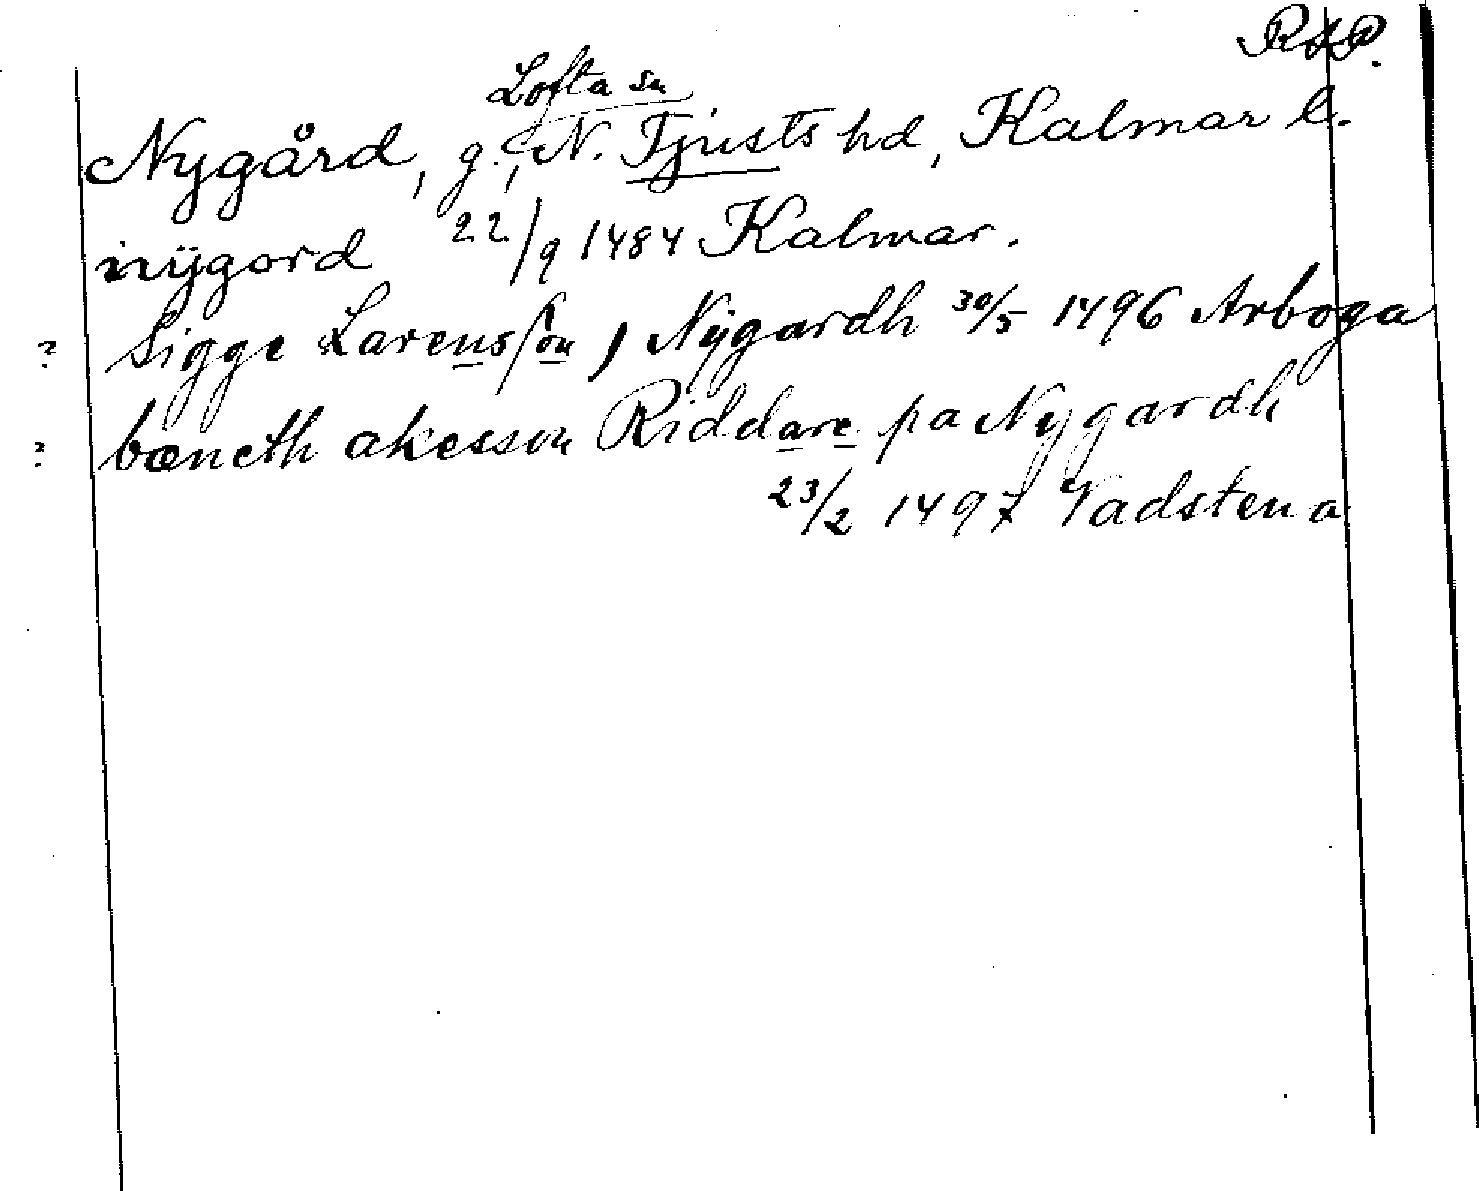 RAP.
Lofta sn
Nygård, g., N. Tjusts hd, Kalmar l.
nÿgord 22/9 1484 Kalmar.
? Sigge Larensson j Nÿgardh 30/5 1496 Arboga
? bæneth akesson Riddare pa Nygardh
23/2 1497 Vadstena